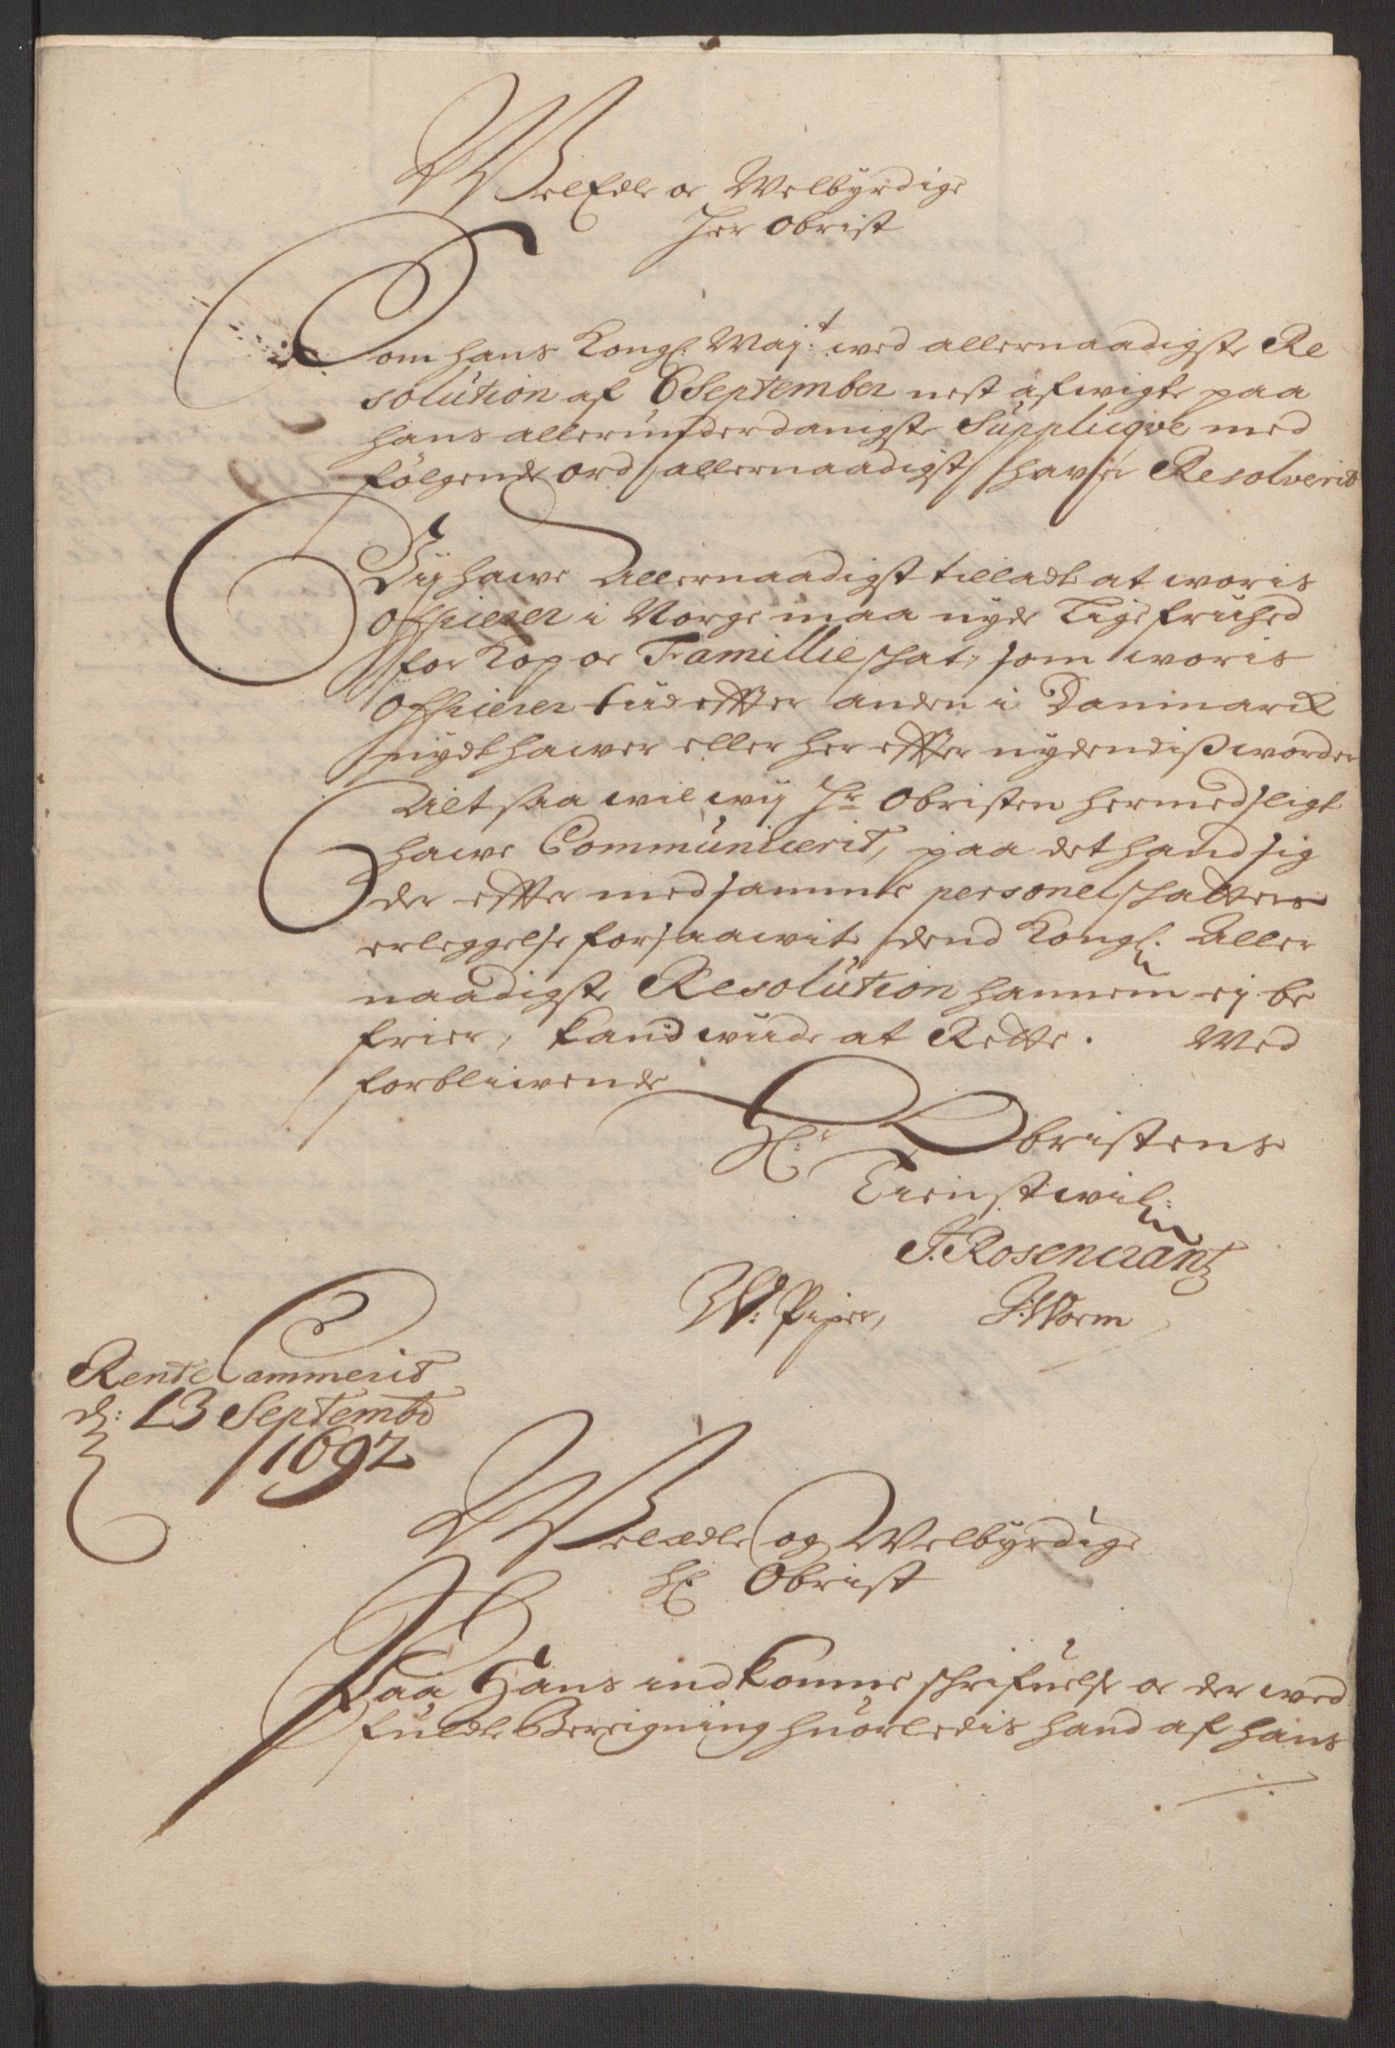 WelEdle oc Welbyrdige
Her Obrist
Som hans Kongl: Maj:t wed allernaadigste Re
solution af 6 September nest afwigte paa
hans allerunderdanigste Supplicqve med
følgende ord allernaadigst haver Resolverit
Vij hawe Allernaadigst tilladt at woris
Officerer i Norge maa nyde Lige friihed
for Kop oc Famillie skat, som woris
Officerer tiid effter anden i Danmarck
nydt hawer eller her effter nydendis worder
Altsaa wil wij Hr Obristen hermed sligt
hawe Communicerit, paa det hand sig
der effter med samme personel skatters
erleggelse forsaawit dend Kongl. Aller
naadigste Resolution hannem ej be
frier, kand wide at Rette. Med
forbliwende
Hr: Obristens
Tienstwil:
J. Rosencrantz
W: Piper, J: Worm
Rente Cammerit
d: 13 Septembr
1692
Weledle og Welbyrdige
Hr Obrist
Paa Hans indkomne schrifuelse oc der wed
fulte Bereigning huorledis hand af hans